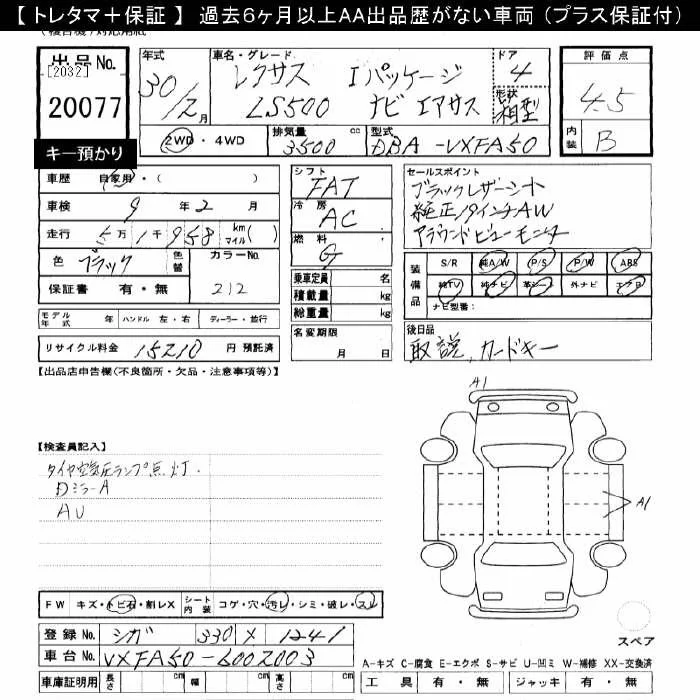 【トレタマ＋保証】 過去6ヶ月以上AA出品歴がない車両（プラス保証付）
出品No.
[2032]
20077
キー預かり
年式
30/2月
車名・グレード
レクサス Iパッケージ
LS500 ナビ エアサス
ドア
4
形状
箱型
評価点
4.5
内装
B
2WD・4WD
排気量 cc
3500
型式
DBA-VXFA50
車歴 自家用・( )
車検 9年2月
走行 5万1千958 km マイル( )
色 ブラック
色替
カラーNo.
212
保証書 有・無
モデル年式 年 ハンドル 左・右 ディーラー・並行
リサイクル料金 15210 円 預託済
シフト
FAT
冷房
AC
燃料
G
乗車定員 名
積載量 kg
総重量 kg
名変期限
月 日
セールスポイント
ブラックレザーシート
純正19インチAW
アラウンドビューモニター
装備品
S/R 純A/W P/S P/W ABS
純TV 純ナビ 革シート 外ナビ エアB
ナビ型番:
後日品
取説、カードキー
【出品店申告欄(不良箇所・欠品・注意事項等)】
【検査員記入】
タイヤ空気圧ランプ点灯.
DミラーA
AU
A1
A1
FW キズ・トビ石・割レX
シート内装 コゲ・穴・汚レ・シミ・破レ・スレ
登録No. シガ 330 X 1241
車台No. VXFA50-6002003
車庫証明用 長さ cm 幅 cm 高さ cm
スペア
A-キズ C-腐食 E-エクボ S-サビ U-凹ミ W-補修 XX-交換済
工具 有・無 ジャッキ 有・無